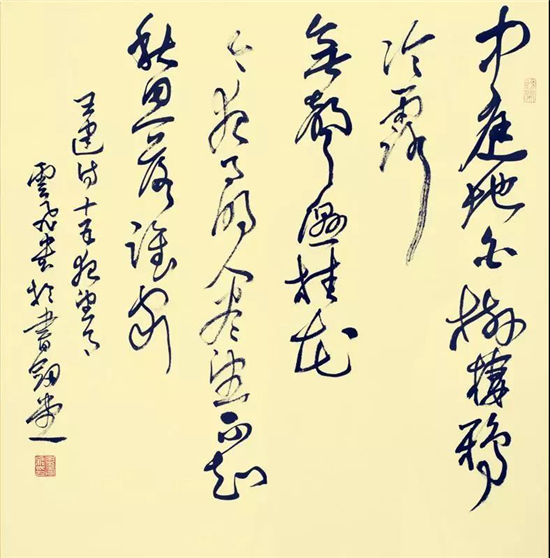 中庭地白樹棲鴉
冷露
無聲濕桂花
今夜月明人盡望不知
秋思落誰家
王建詩十五夜望月
雲飛書於書劍堂